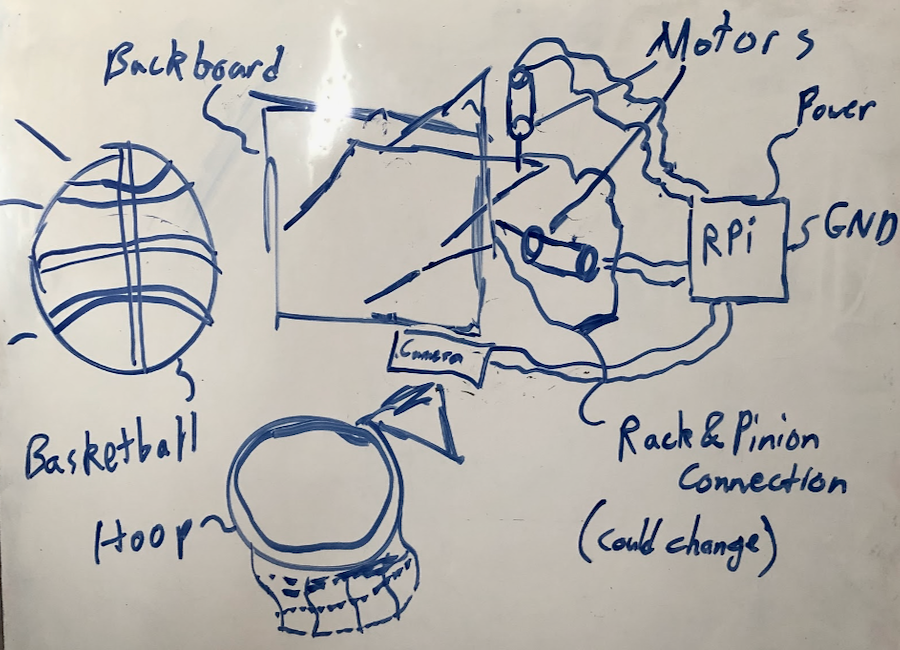 Motors
Backboard
Power
RPi
GND
Camera
Basketball
Rack & Pinion
Connection
(could change)
Hoop